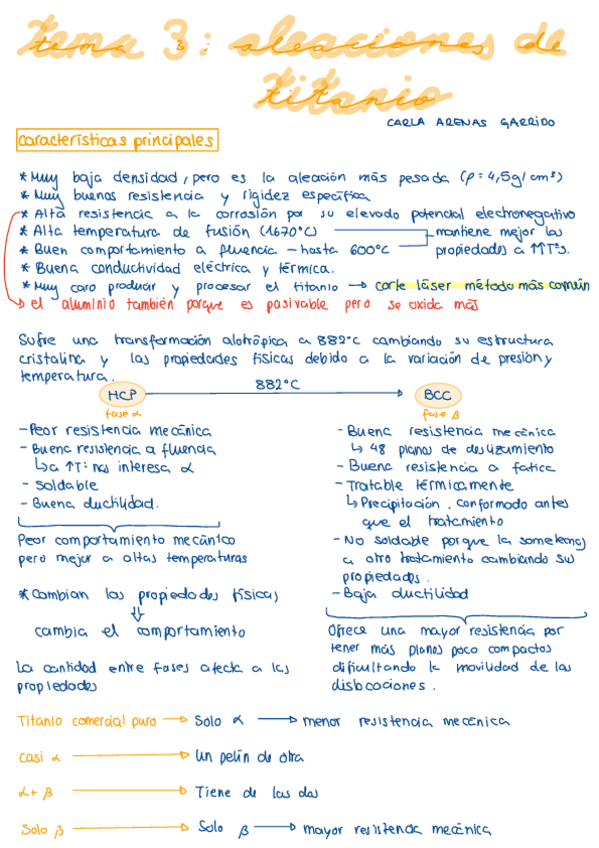 tema 3: aleaciones de
titanio
CARLA ARENAS GARRIDO
características principales
* Muy baja densidad, pero es la aleación más pesada (ρ = 4,5g/cm³)
* Muy buenas resistencia y rigidez específica
* Alta resistencia a la corrosión por su elevado potencial electronegativo
* Alta temperatura de fusión (1670°C)
* Buen comportamiento a fluencia – hasta 600°C
mantiene mejor las
propiedades a ↑↑Tªs.
* Buena conductividad eléctrica y térmica.
* Muy caro producir y procesar el titanio → corte láser método más común
→ el aluminio también porque es pasivable pero se oxida más
Sufre una transformación alotrópica a 882°C cambiando su estructura
cristalina y las propiedades físicas debido a la variación de presión y
temperatura.
HCP 882°C → BCC
fase α
fase β
- Peor resistencia mecánica
- Buena resistencia a fluencia
↳ a ↑Tª nos interesa α
- Soldable
- Buena ductilidad.
Peor comportamiento mecánico
pero mejor a altas temperaturas
* Cambian las propiedades físicas
⇓
cambia el comportamiento
La cantidad entre fases afecta a las
propiedades
- Buena resistencia mecánica
↳ 48 planos de deslizamiento
- Buena resistencia a fatica
- Tratable térmicamente
↳ Precipitación. conformado antes
que el tratamiento
- No soldable porque la sometemos
a otro tratamiento cambiando sus
propiedades.
- Baja ductilidad
Ofrece una mayor resistencia por
tener más planos poco compactos
dificultando la movilidad de las
dislocaciones.
Titanio comercial puro → Solo α → menor resistencia mecánica
casi α → Un pelín de otra
α + β → Tiene de las dos
Solo β → Solo β → mayor resistencia mecánica